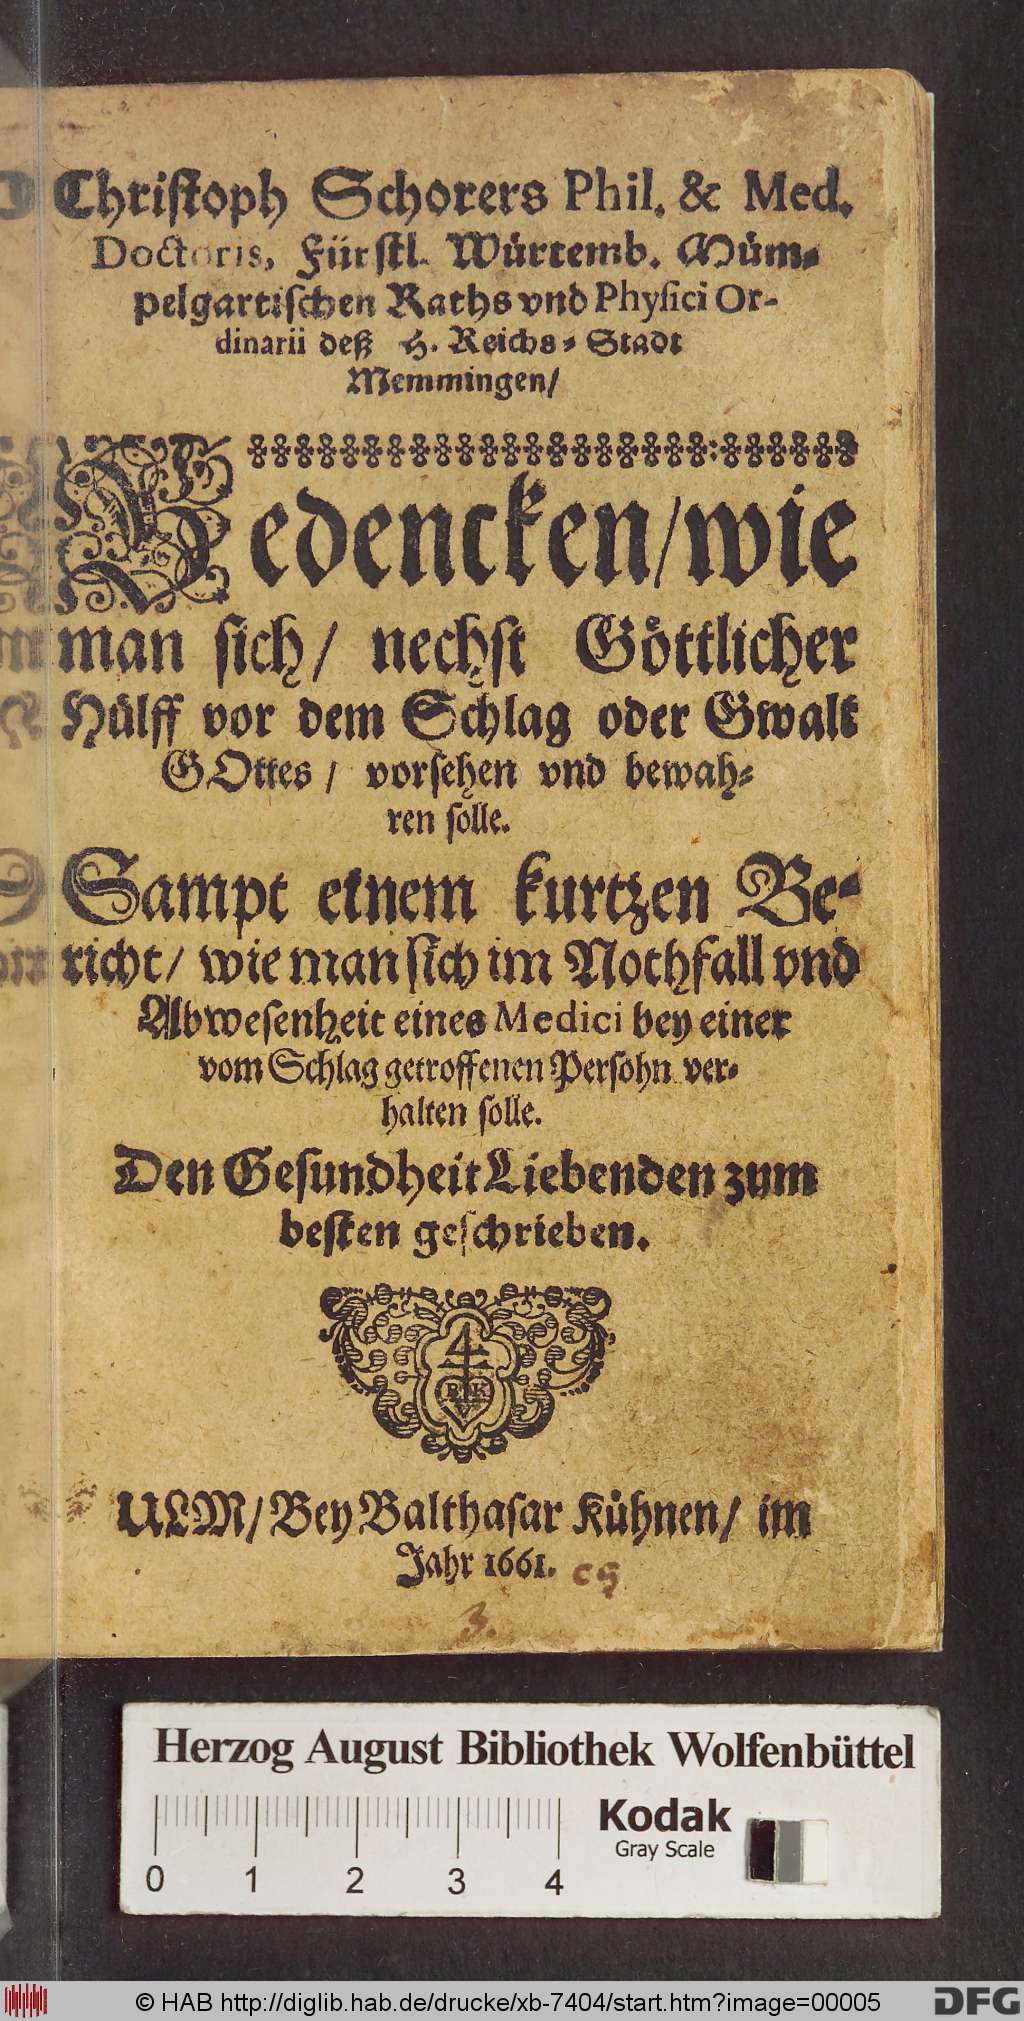 Christoph Schorers Phil. & Med.
Doctoris, Fürstl. Würtemb. Müm-
pelgartischen Raths vnd Physici Or-
dinarii deß H. Reichs-Stadt
Memmingen/
Bedencken/wie
man sich/ nechst Göttlicher
Hülff vor dem Schlag oder Gwalt
GOttes/ vorsehen vnd bewah-
ren solle.
Sampt einem kurtzen Be-
richt/ wie man sich im Nothfall vnd
Abwesenheit eines Medici bey einer
vom Schlag getroffenen Persohn ver-
halten solle.
Den Gesundheit Liebenden zum
besten geschrieben.
B K
ULM/ Bey Balthasar Kühnen/ im
Jahr 1661.
3.
Herzog August Bibliothek Wolfenbüttel
Kodak
Gray Scale
0 1 2 3 4
© HAB http://diglib.hab.de/drucke/xb-7404/start.htm?image=00005
DFG